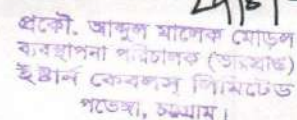 প্রকৌ. আব্দুল মালেক মোড়ল
ব্যবস্থাপনা পরিচালক (ভারপ্রাপ্ত)
ইষ্টার্ন কেবলস্ লিমিটেড
পতেঙ্গা, চট্টগ্রাম।